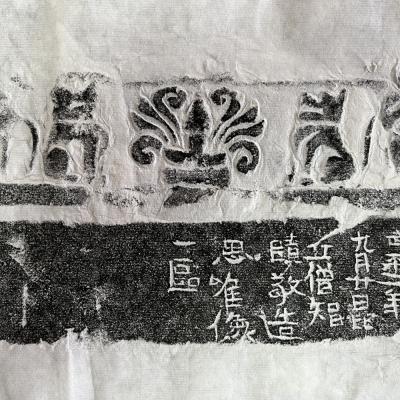 年
九月廿日比
丘僧智
賾敬造
思唯像
一區